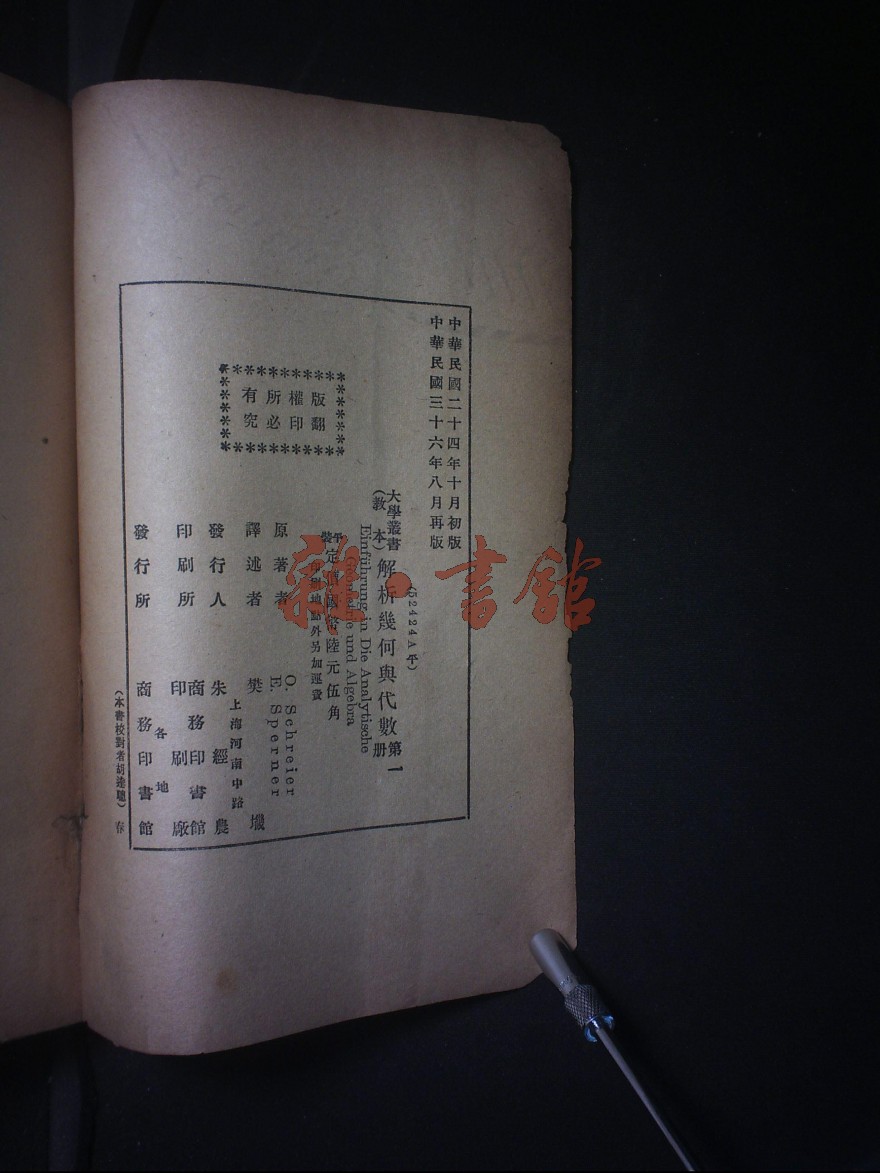 中華民國二十四年十月初版
中華民國三十六年八月再版
(52424A平)
大學叢書
(教本)
解析幾何與代數第一册
Einführung in Die Analytische
Geometrie und Algebra
平裝定價國幣陸元伍角
印刷地點外另加運費
版權所有
翻印必究
原著者 O. Schreier
E. Sperner
譯述者 樊𰋀
上海河南中路
發行人 朱經農
印刷所 商務印書館
印刷廠
發行所 各地
商務印書館
(本書校對者胡達聰)
春
雜·書館